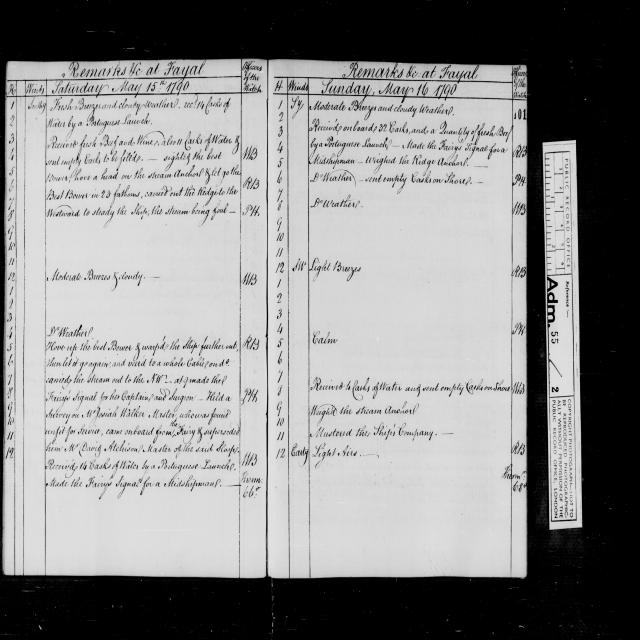 Remarks &c at Fayal
Officers of the Watch
H. Winds Saturday May 15th 1790
1 Fresh Breezes and cloudy Weather. rec'd 14 Casks of
2 Water by a Portuguese Launch.
3 Received fresh Beef and Wine, also 11 Casks of Water &
4 sent empty Casks to be filled. — sighted the best WB
5 Bower, have a hand on the steam Anchor & let go the
6 Best Bower in 23 fathoms, carried out the Kedge to the RB
7 Westward to steady the Ship, the steam being foul — PH
8
9
10
11
12 Moderate Breezes & cloudy. — WB
1
2
3
4 Do Weather
5 Hove up the best Bower & warp'd the Ship farther out, RB
6 then let it go again and veer'd to a whole Cable on do
7 carried the steam out to the NW — at 9 made the
8 Fairy's Signal for his Captain and Surgeon — Held a PH
9 Survey on Mr Josiah Walker Master, who was found
10 unfit for Service, came onboard from the Fairy & superseded
11 him Mr David Atchison, Master of the said Sloop,
12 Received 14 Casks of Water by a Portuguese Launch. WB
Made the Fairy's Signal for a Midshipman. — Therm 66°
Remarks &c at Fayal
Officers of the Watch
H. Winds Sunday, May 16 1790
1 Sy Moderate Breezes and cloudy Weather.
2
3 Received on board 32 Casks, and a Quantity of fresh Beef
4 by a Portuguese Launch, — Made the Fairy's Signal for a RB
5 Midshipman — Weighed the Kedge Anchor. —
6 Do Weather — sent empty Casks on Shore. — PH
7
8 Do Weather. WB
9
10
11
12 SW Light Breezes RB
1
2
3
4 PH
5 Calm
6
7
8 Received 4 Casks of Water and sent empty Casks on Shore WB
9
10 Weigh'd the steam Anchor
11 Mustered the Ship's Company. —
12 East Light Airs. — RB
Therm 68°
101
PUBLIC RECORD OFFICE
Reference:—
Adm. 55 / 2
COPYRIGHT PHOTOGRAPH—NOT TO
BE REPRODUCED PHOTOGRAPHIC-
ALLY WITHOUT PERMISSION OF THE
PUBLIC RECORD OFFICE, LONDON